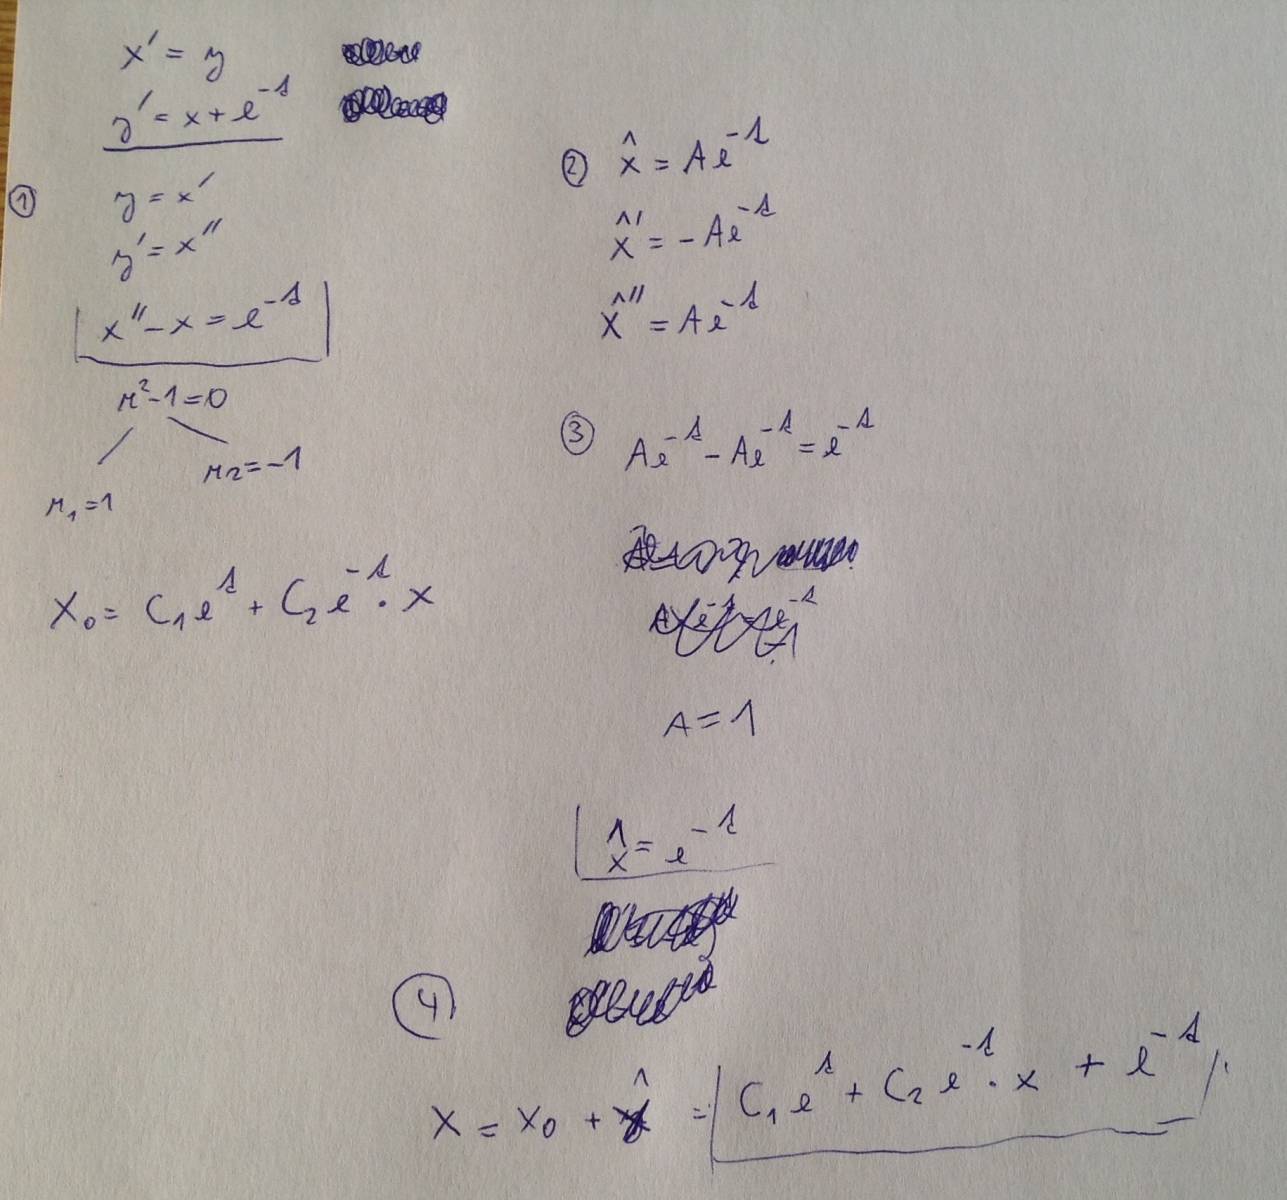 x' = y
y' = x + e^{-t}
① y = x'
y' = x''
x'' - x = e^{-t}
r² - 1 = 0
r₁ = 1 r₂ = -1
x₀ = C₁e^{t} + C₂e^{-t} · x
② x̂ = Ae^{-t}
x̂' = -Ae^{-t}
x̂'' = Ae^{-t}
③ Ae^{-t} - Ae^{-t} = e^{-t}
A = 1
x̂ = e^{-t}
④
x = x₀ + x̂ = C₁e^{t} + C₂e^{-t} · x + e^{-t}